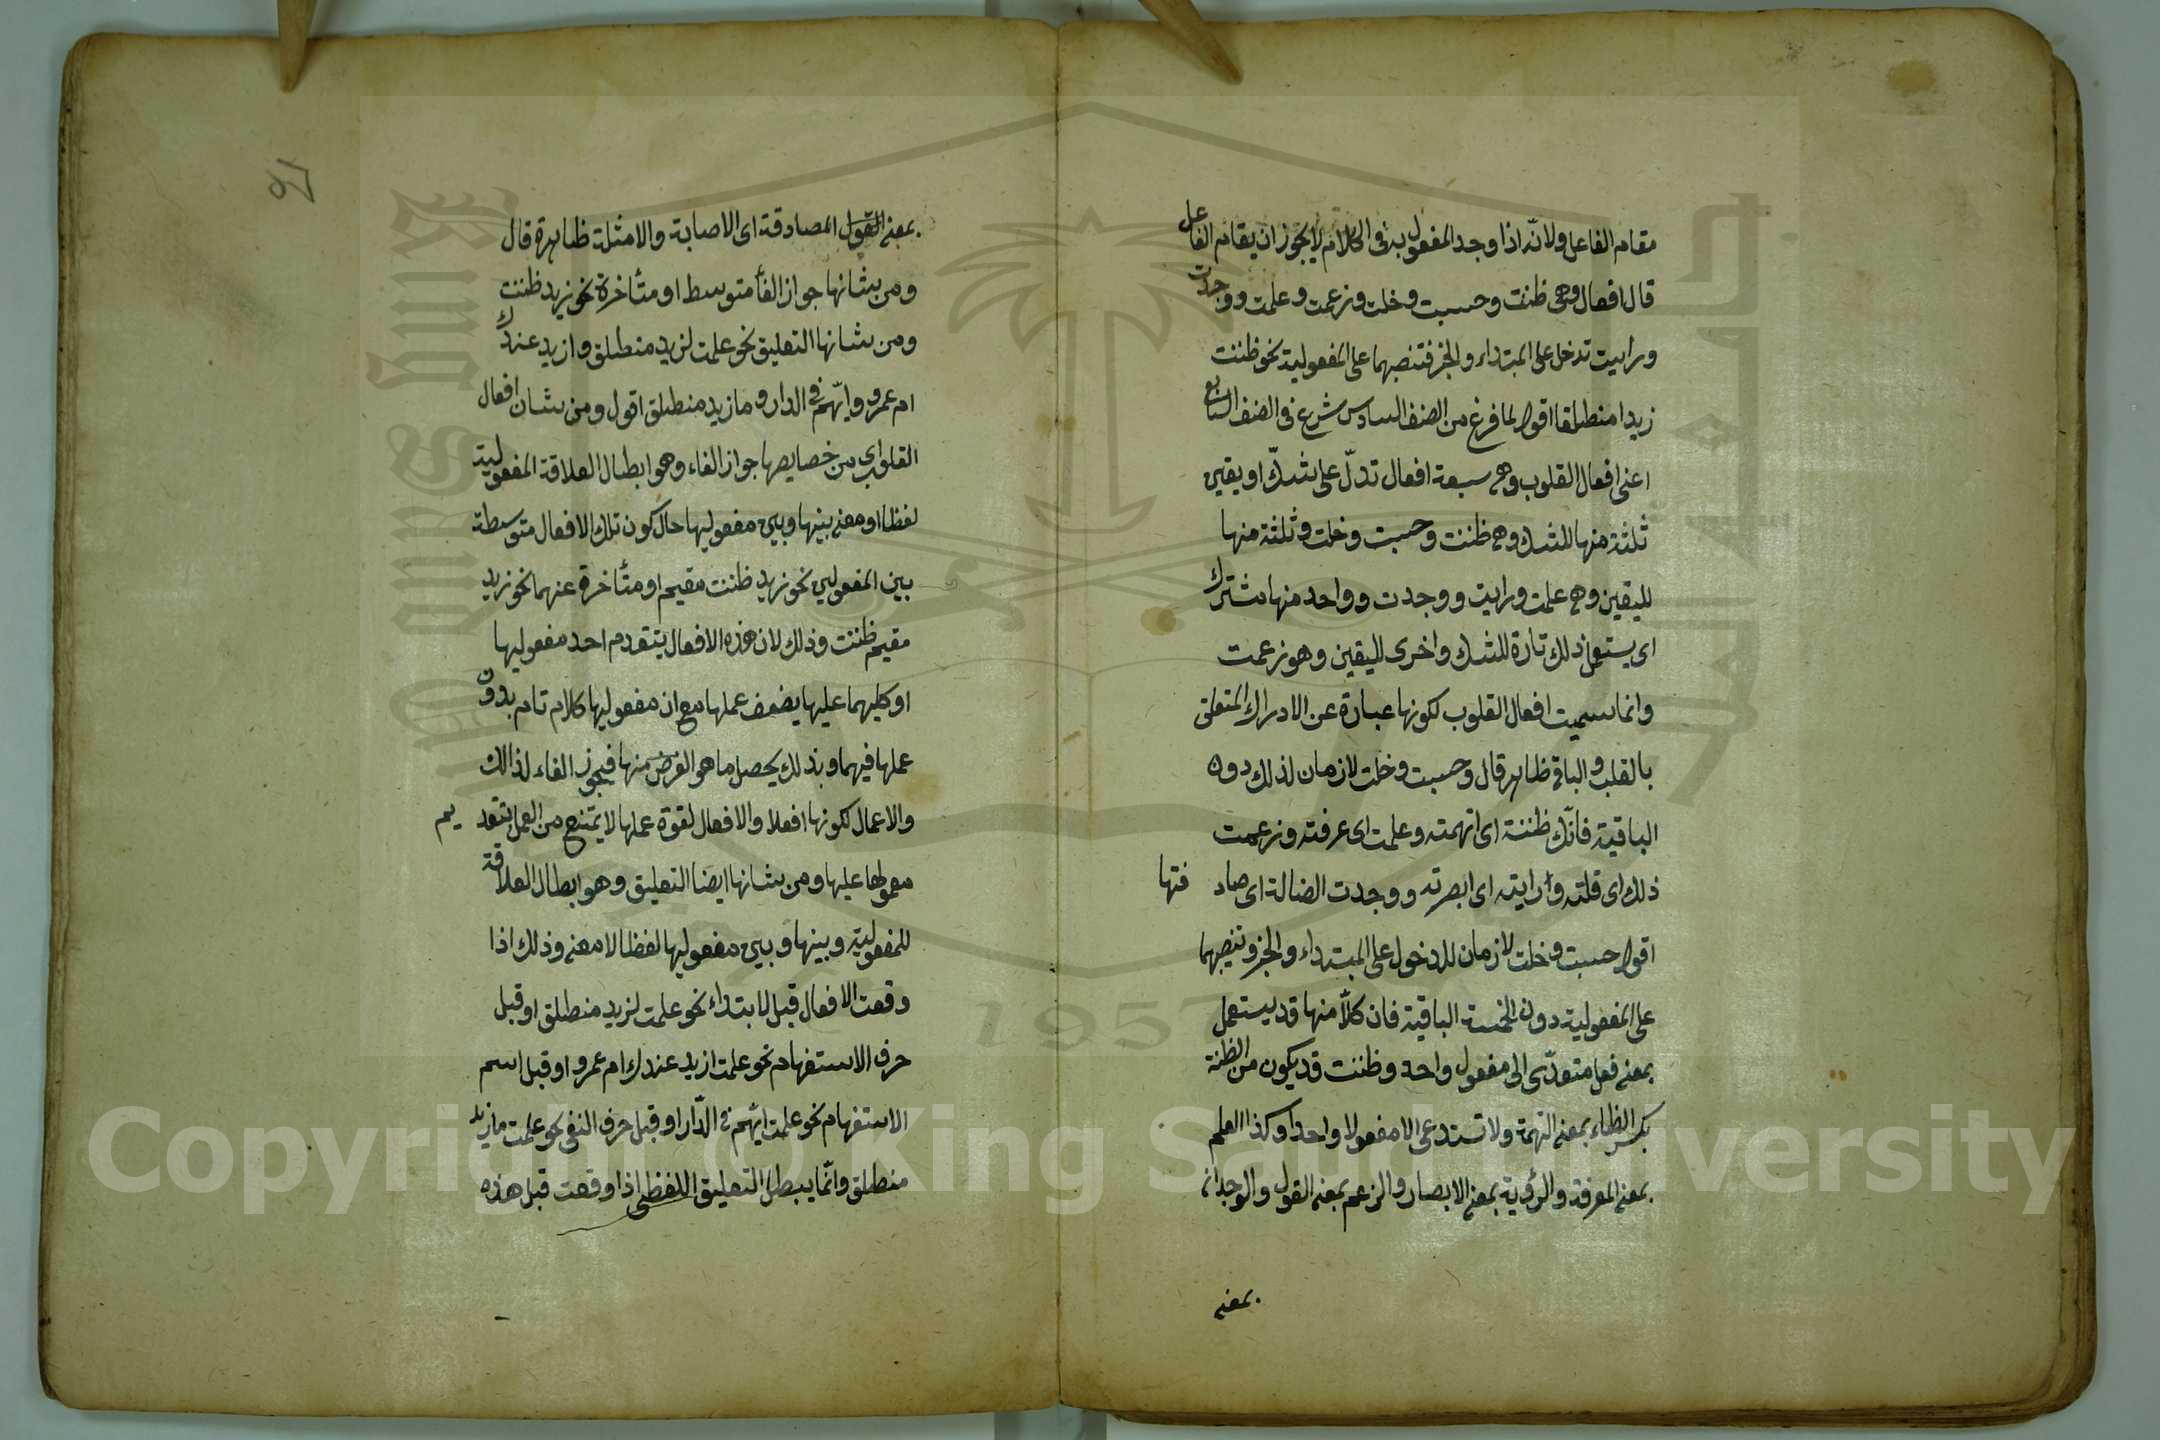 مقام الفاعل ولانه اذا وجد المفعول به في الكلام لا يجوز ان يقام الفاعل
قال افعال وهي ظننت وحسبت وخلت وزعمت وعلمت ووجدت
ورأيت تدخل على المبتداء والخبر فتنصبهما على المفعولية نحو ظننت
زيدا منطلقا اقول لما فرغ من الصنف السادس شرع في الصنف السابع
اعنى افعال القلوب وهي سبعة افعال تدلّ على شكّ او يقين
ثلثة منها للشك وهي ظننت وحسبت وخلت وثلثة منها
لليقين وهي علمت ورايت ووجدت وواحد منها مشترك
اى يستعمل ذلك تارة للشك واخرى لليقين وهو زعمت
وانما سميت افعال القلوب لكونها عبارة عن الادراك المتعلق
بالقلب والباقي ظاهر قال وحسبت وخلت لازمان لذلك دون
الباقية فانّك ظننته اى اتهمته وعلمت اى عرفته وزعمت
ذلك اى قلته ورايته اى ابصرته ووجدت الضالة اى صادفتها
اقول حسبت وخلت لازمان للدخول على المبتداء والخبر وتنصبهما
على المفعولية دون الخمسة الباقية فان كلاّ منها قد يستعمل
بمعنى فعل متعدّى الى مفعول واحد وظننت قد يكون من الظنة
بكسر الظاء بمعنى التهمة ولا تستدعى الا مفعولا واحدا وكذا العلم
بمعنى المعرفة والرؤية بمعنى الابصار والزعم بمعنى القول والوجدان
بمعنى
بمعنى المصادقة اى الاصابة والامثلة ظاهرة قال
ومن شانها جواز الغأ متوسطا او متأخرة نحو زيد ظننت
ومن شانها التعليق نحو علمت لزيد منطلق وازيد عندك
ام عمرو وايّهم في الدار وما زيد منطلق اقول ومن شان افعال
القلوب اى من خصايصها جواز الغاء وهو ابطال العلاقة المفعولية
لفظا او معنى بينها وبين مفعوليها حال كون تلك الافعال متوسطة
بين المفعولين نحو زيد ظننت مقيم او متأخرة عنهما نحو زيد
مقيم ظننت وذلك لان هذه الافعال يتقدم احد مفعوليها
او كليهما عليها يضعف عملها مع ان مفعوليها كلام تام بدون
عملها فيهما وبذلك يحصل ما هو الغرض منها فيجوز الغاء لذالك
والاعمال لكونها افعلا والافعال لقوة عملها لا يمتنع من العمل بتقديم
معمولها عليها ومن شانها ايضا التعليق وهو ابطال العلاقة
للمفعولية وبينها وبين مفعوليها لفظا لا معنى وذلك اذا
وقعت الافعال قبل لابتداء نحو علمت لزيد منطلق او قبل
حرف الاستفهام نحو علمت ازيد عندك ام عمرو او قبل اسم
الاستفهام نحو علمت ايّهم في الدّار او قبل حرف النفى نحو علمت ما زيد
منطلق وانّما يبطل التعليق اللفظى اذا وقعت قبل هذه
1957
Copyright © King Saud University